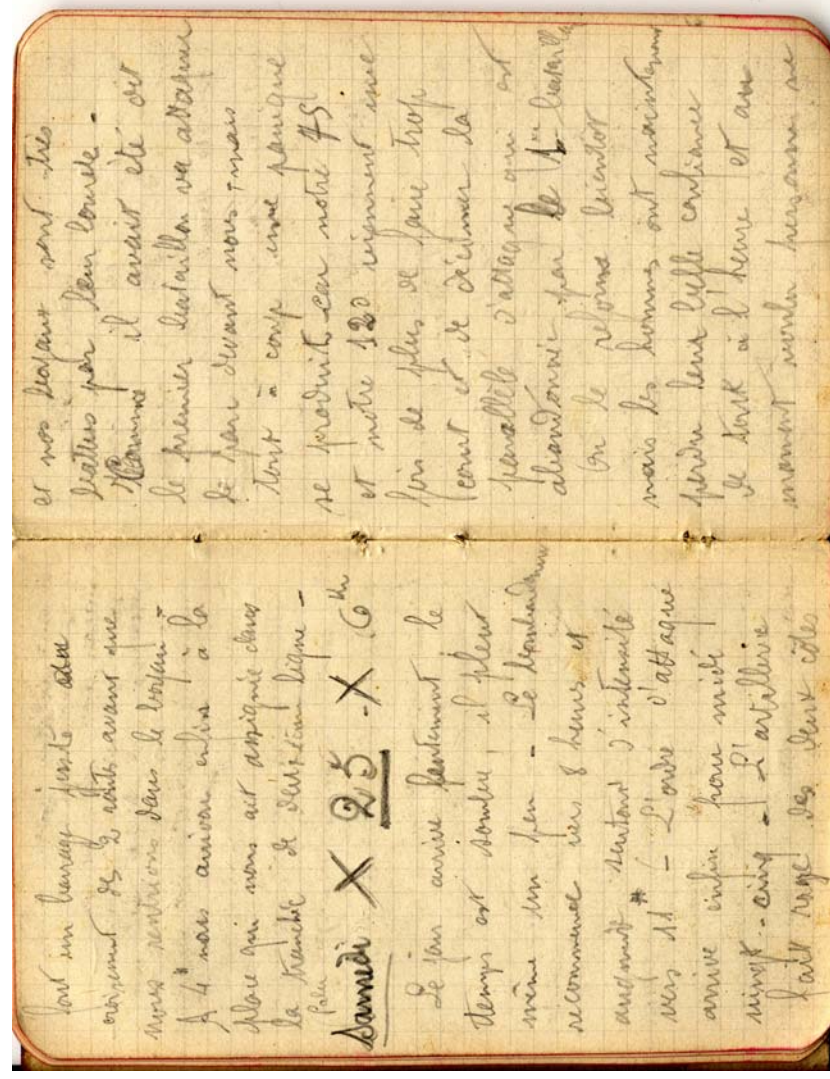 font un barrage juste au
croisement des 2 routes avant que
nous rentrions dans le boyau -
A 4h nous arrivons enfin à la
place qui nous ait assignée dans
la tranchée de deuxième ligne -
Samedi X 25 - X
Le jour arrive lentement le
temps est sombre, il pleut
même un peu - Le bombardement
recommence vers 8 heures et
augmente surtout d'intensité
vers 11 - L'ordre d'attaque
arrive enfin pour midi
vingt-cinq - L'artillerie
fait rage des deux côtés
et nos boyaux sont très
battus par leur lourde -
Comme il avait été dit
le premier bataillon va attaquer
devant nous mais
tout à coup une panique
se produit car notre 75
et notre 120 viennent une
fois de plus de faire trop
court et de décimer la
parallèle d'attaque qui est
abandonnée par le 1er bataillon
On le reforme bientôt
mais les hommes ont maintenant
perdu leur belle confiance
de tout à l'heure et au
moment voulu personne ne